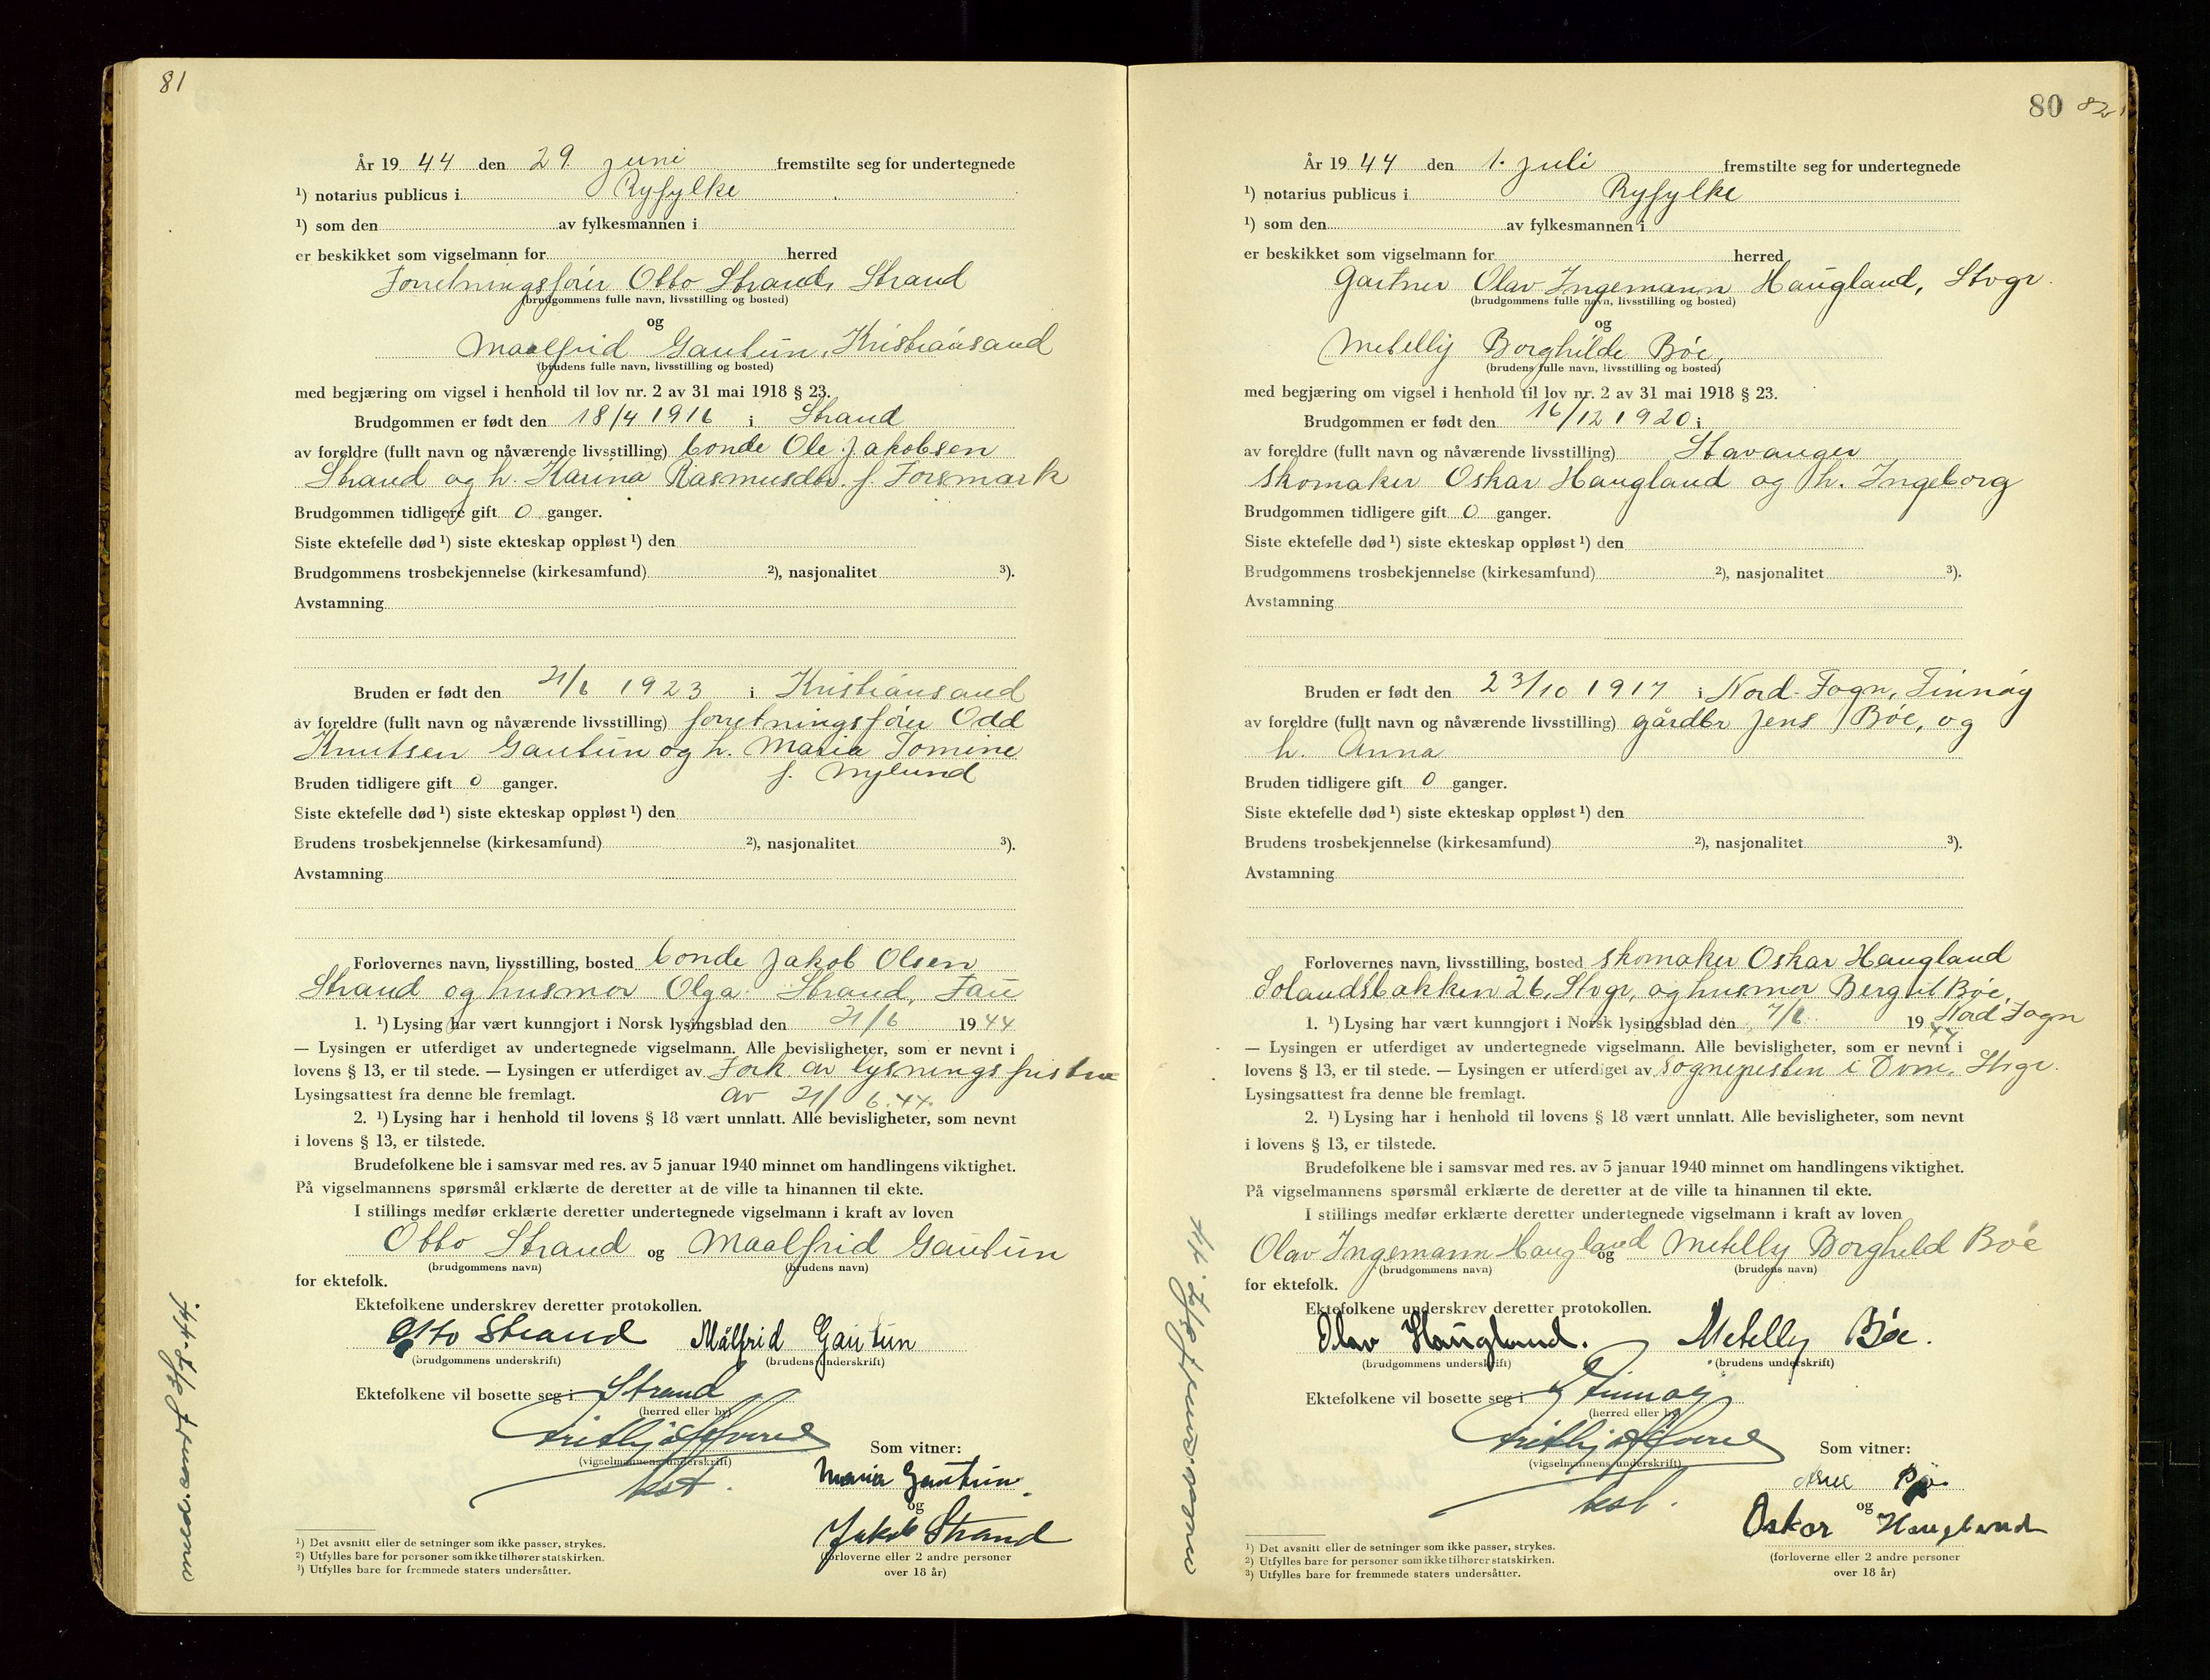 81
År 19 44 den 29. juni fremstilte seg for undertegnede
¹) notarius publicus i Ryfylke
¹) som den av fylkesmannen i
er beskikket som vigselmann for herred
Forretningsfører Otto Strand, Strand
(brudgommens fulle navn, livsstilling og bosted)
og
Maalfrid Gautun, Kristiansand
(brudens fulle navn, livsstilling og bosted)
med begjæring om vigsel i henhold til lov nr. 2 av 31 mai 1918 § 23.
Brudgommen er født den 18/4 1916 i Strand
av foreldre (fullt navn og nåværende livsstilling) bonde Ole Jakobsen
Strand og h. Karina Rasmusdtr. f. Forsmark
Brudgommen tidligere gift 0 ganger.
Siste ektefelle død ¹) siste ekteskap oppløst ¹) den
Brudgommens trosbekjennelse (kirkesamfund) ²), nasjonalitet ³).
Avstamning
Bruden er født den 21/6 1923 i Kristiansand
av foreldre (fullt navn og nåværende livsstilling) forretningsfører Odd
Knutsen Gautun og h. Maria Tomine
f. Nylund
Bruden tidligere gift 0 ganger.
Siste ektefelle død ¹) siste ekteskap oppløst ¹) den
Brudens trosbekjennelse (kirkesamfund) ²), nasjonalitet ³).
Avstamning
Forlovernes navn, livsstilling, bosted bonde Jakob Olsen
Strand og husmor Olga Strand, Tau
1. ¹) Lysing har vært kunngjort i Norsk lysingsblad den 21/6 19 44
— Lysingen er utferdiget av undertegnede vigselmann. Alle bevisligheter, som er nevnt i
lovens § 13, er til stede. — Lysingen er utferdiget av Fork. av lysningsfristen
Lysingsattest fra denne ble fremlagt. av 21/6.44.
2. ¹) Lysing har i henhold til lovens § 18 vært unnlatt. Alle bevisligheter, som nevnt
i lovens § 13, er tilstede.
Brudefolkene ble i samsvar med res. av 5 januar 1940 minnet om handlingens viktighet.
På vigselmannens spørsmål erklærte de deretter at de ville ta hinannen til ekte.
I stillings medfør erklærte deretter undertegnede vigselmann i kraft av loven
Otto Strand og Maalfrid Gautun
(brudgommens navn) (brudens navn)
for ektefolk.
Ektefolkene underskrev deretter protokollen.
Otto Strand Målfrid Gautun
(brudgommens underskrift) (brudens underskrift)
Ektefolkene vil bosette seg i Strand
(herred eller by)
(vigselmannens underskrift)
Som vitner:
Maria Gautun.
og
Jakob Strand
(forloverne eller 2 andre personer
over 18 år)
¹) Det avsnitt eller de setninger som ikke passer, strykes.
²) Utfylles bare for personer som ikke tilhører statskirken.
³) Utfylles bare for fremmede staters undersåtter.
80 82
År 19 44 den 1. juli fremstilte seg for undertegnede
¹) notarius publicus i Ryfylke
¹) som den av fylkesmannen i
er beskikket som vigselmann for herred
Gartner Olav Ingemann Haugland, Stvgr.
(brudgommens fulle navn, livsstilling og bosted)
og
Metelly Borghilde Bøe,
(brudens fulle navn, livsstilling og bosted)
med begjæring om vigsel i henhold til lov nr. 2 av 31 mai 1918 § 23.
Brudgommen er født den 16/12 1920 i
av foreldre (fullt navn og nåværende livsstilling) Stavanger
skomaker Oskar Haugland og h. Ingeborg
Brudgommen tidligere gift 0 ganger.
Siste ektefelle død ¹) siste ekteskap oppløst ¹) den
Brudgommens trosbekjennelse (kirkesamfund) ²), nasjonalitet ³).
Avstamning
Bruden er født den 23/10 1917 i Nord-Fogn, Finnøy
av foreldre (fullt navn og nåværende livsstilling) gårdbr Jens Bøe, og
h. Anna
Bruden tidligere gift 0 ganger.
Siste ektefelle død ¹) siste ekteskap oppløst ¹) den
Brudens trosbekjennelse (kirkesamfund) ²), nasjonalitet ³).
Avstamning
Forlovernes navn, livsstilling, bosted skomaker Oskar Haugland
Solandsbakken 26, Stvgr, og husmor Bergit Bøe,
Nord Fogn
1. ¹) Lysing har vært kunngjort i Norsk lysingsblad den 7/6 19 44
— Lysingen er utferdiget av undertegnede vigselmann. Alle bevisligheter, som er nevnt i
lovens § 13, er til stede. — Lysingen er utferdiget av sognepresten i Dom. Stvgr.
Lysingsattest fra denne ble fremlagt.
2. ¹) Lysing har i henhold til lovens § 18 vært unnlatt. Alle bevisligheter, som nevnt
i lovens § 13, er tilstede.
Brudefolkene ble i samsvar med res. av 5 januar 1940 minnet om handlingens viktighet.
På vigselmannens spørsmål erklærte de deretter at de ville ta hinannen til ekte.
I stillings medfør erklærte deretter undertegnede vigselmann i kraft av loven
Olav Ingemann Haugland og Metelly Borghild Bøe
(brudgommens navn) (brudens navn)
for ektefolk.
Ektefolkene underskrev deretter protokollen.
Olav Haugland. Metelly Bøe.
(brudgommens underskrift) (brudens underskrift)
Ektefolkene vil bosette seg i Finnøy
(herred eller by)
(vigselmannens underskrift)
Som vitner:
og
Oskar Haugland
(forloverne eller 2 andre personer
over 18 år)
¹) Det avsnitt eller de setninger som ikke passer, strykes.
²) Utfylles bare for personer som ikke tilhører statskirken.
³) Utfylles bare for fremmede staters undersåtter.